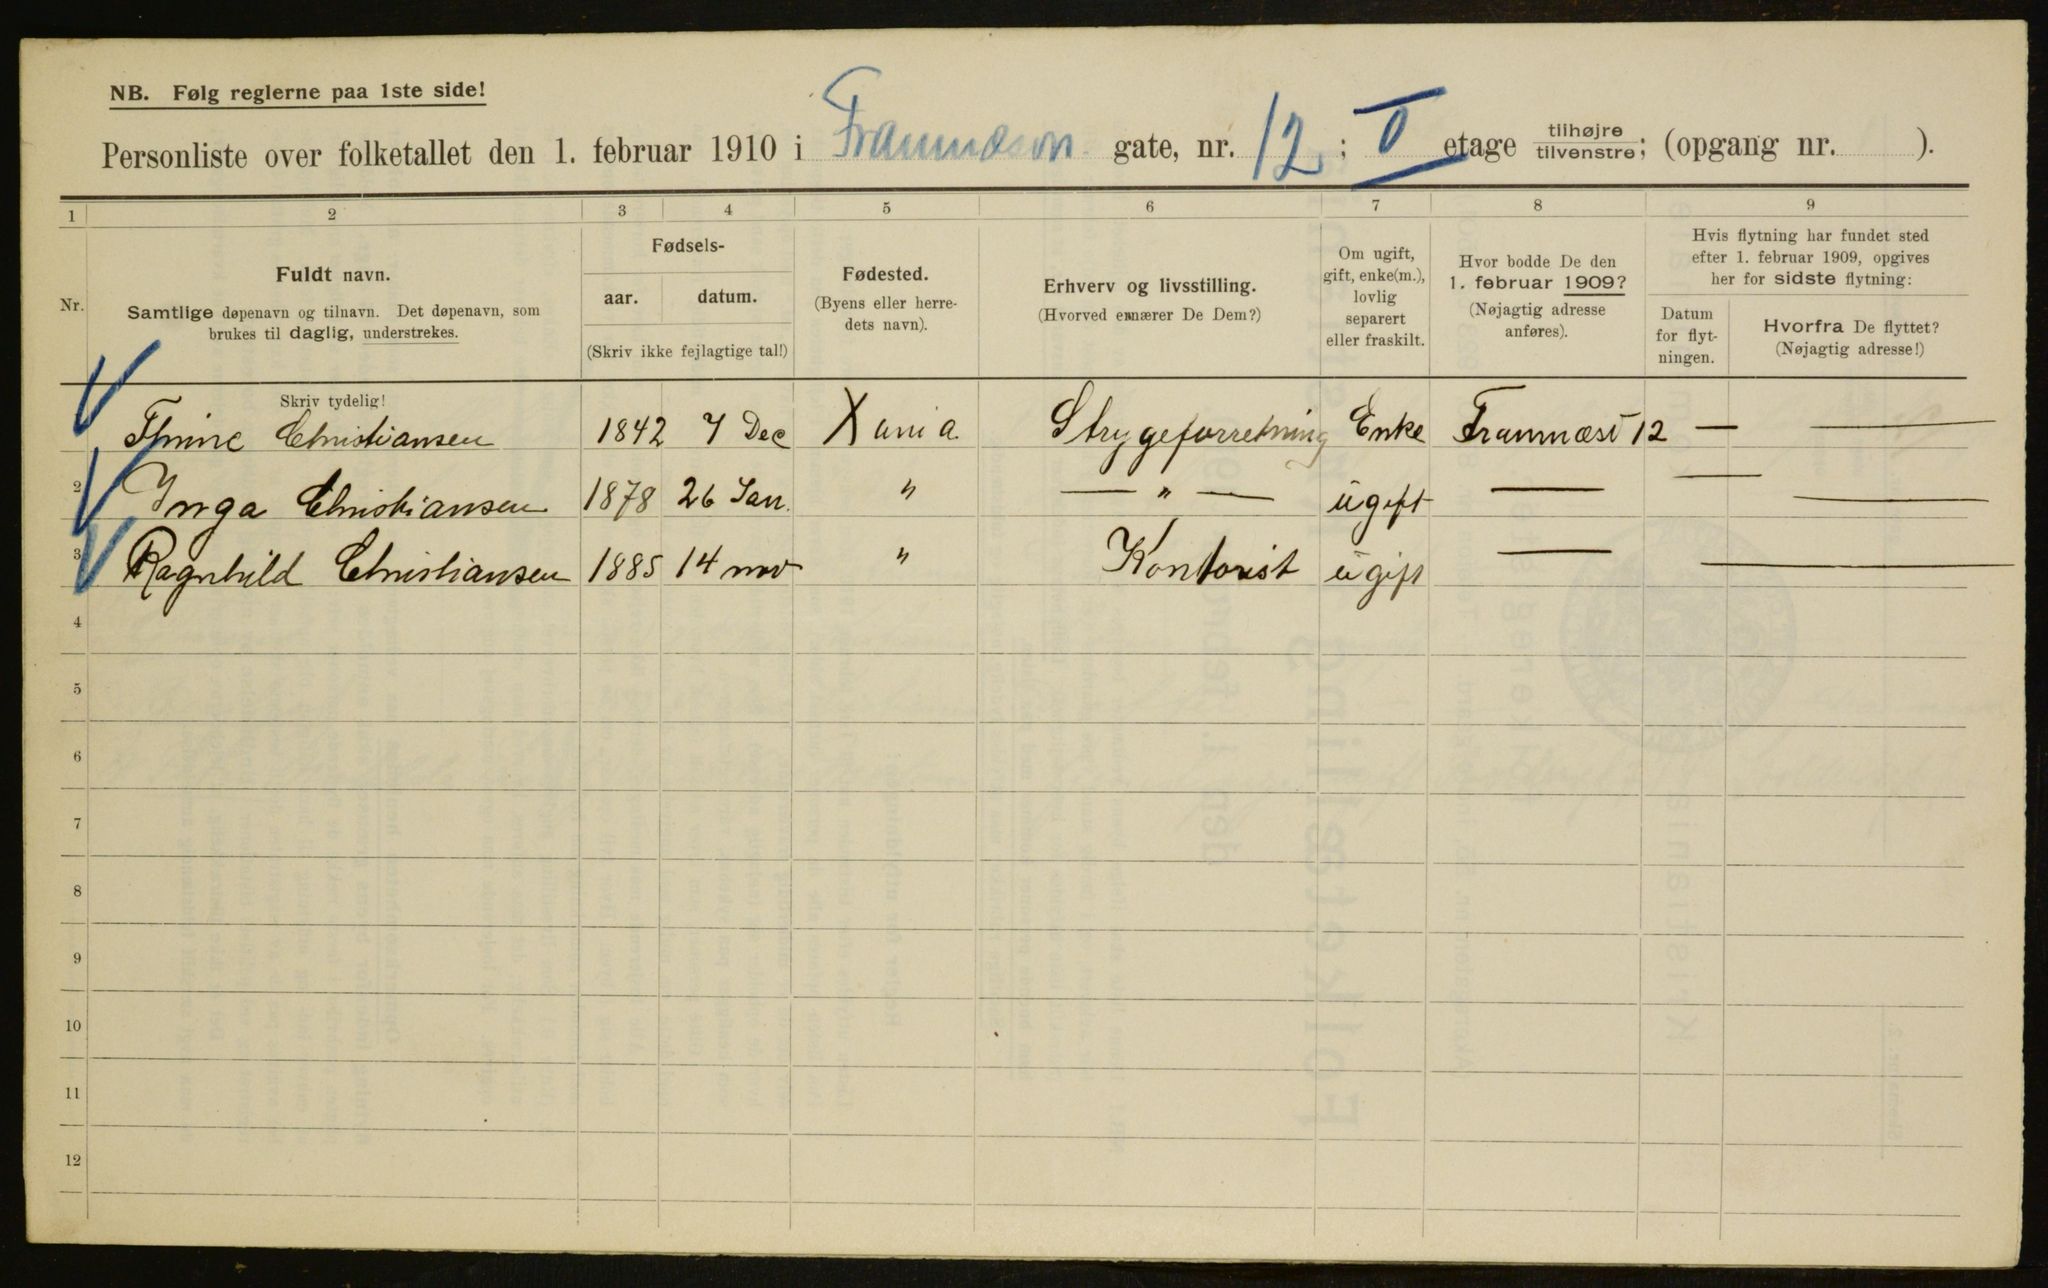 NB. Følg reglerne paa 1ste side!
Personliste over folketallet den 1. februar 1910 i Framnæsvn gate, nr. 12; etage tilhøjre/tilvenstre; (opgang nr. ).
1 2 3 4 5 6 7 8 9
Nr.
Fuldt navn.
Samtlige døpenavn og tilnavn. Det døpenavn, som
brukes til daglig, understrekes.
Skriv tydelig!
Fødsels-
aar. datum.
(Skriv ikke fejlagtige tal!)
Fødested.
(Byens eller herre-
dets navn).
Erhverv og livsstilling.
(Hvorved ernærer De Dem?)
Om ugift,
gift, enke(m.),
lovlig
separert
eller fraskilt.
Hvor bodde De den
1. februar 1909?
(Nøjagtig adresse
anføres).
Hvis flytning har fundet sted
efter 1. februar 1909, opgives
her for sidste flytning:
Datum
for flyt-
ningen.
Hvorfra De flyttet?
(Nøjagtig adresse!)
Christiansen 1842 7 Dec Xania Strygeforretning Enke Framnæsv 12 — —
2 Inga Christiansen 1878 26 Jan. " — " — ugift — — —
3 Ragnhild Christiansen 1885 14 nov " Kontorist ugift — —
4
5
6
7
8
9
10
11
12